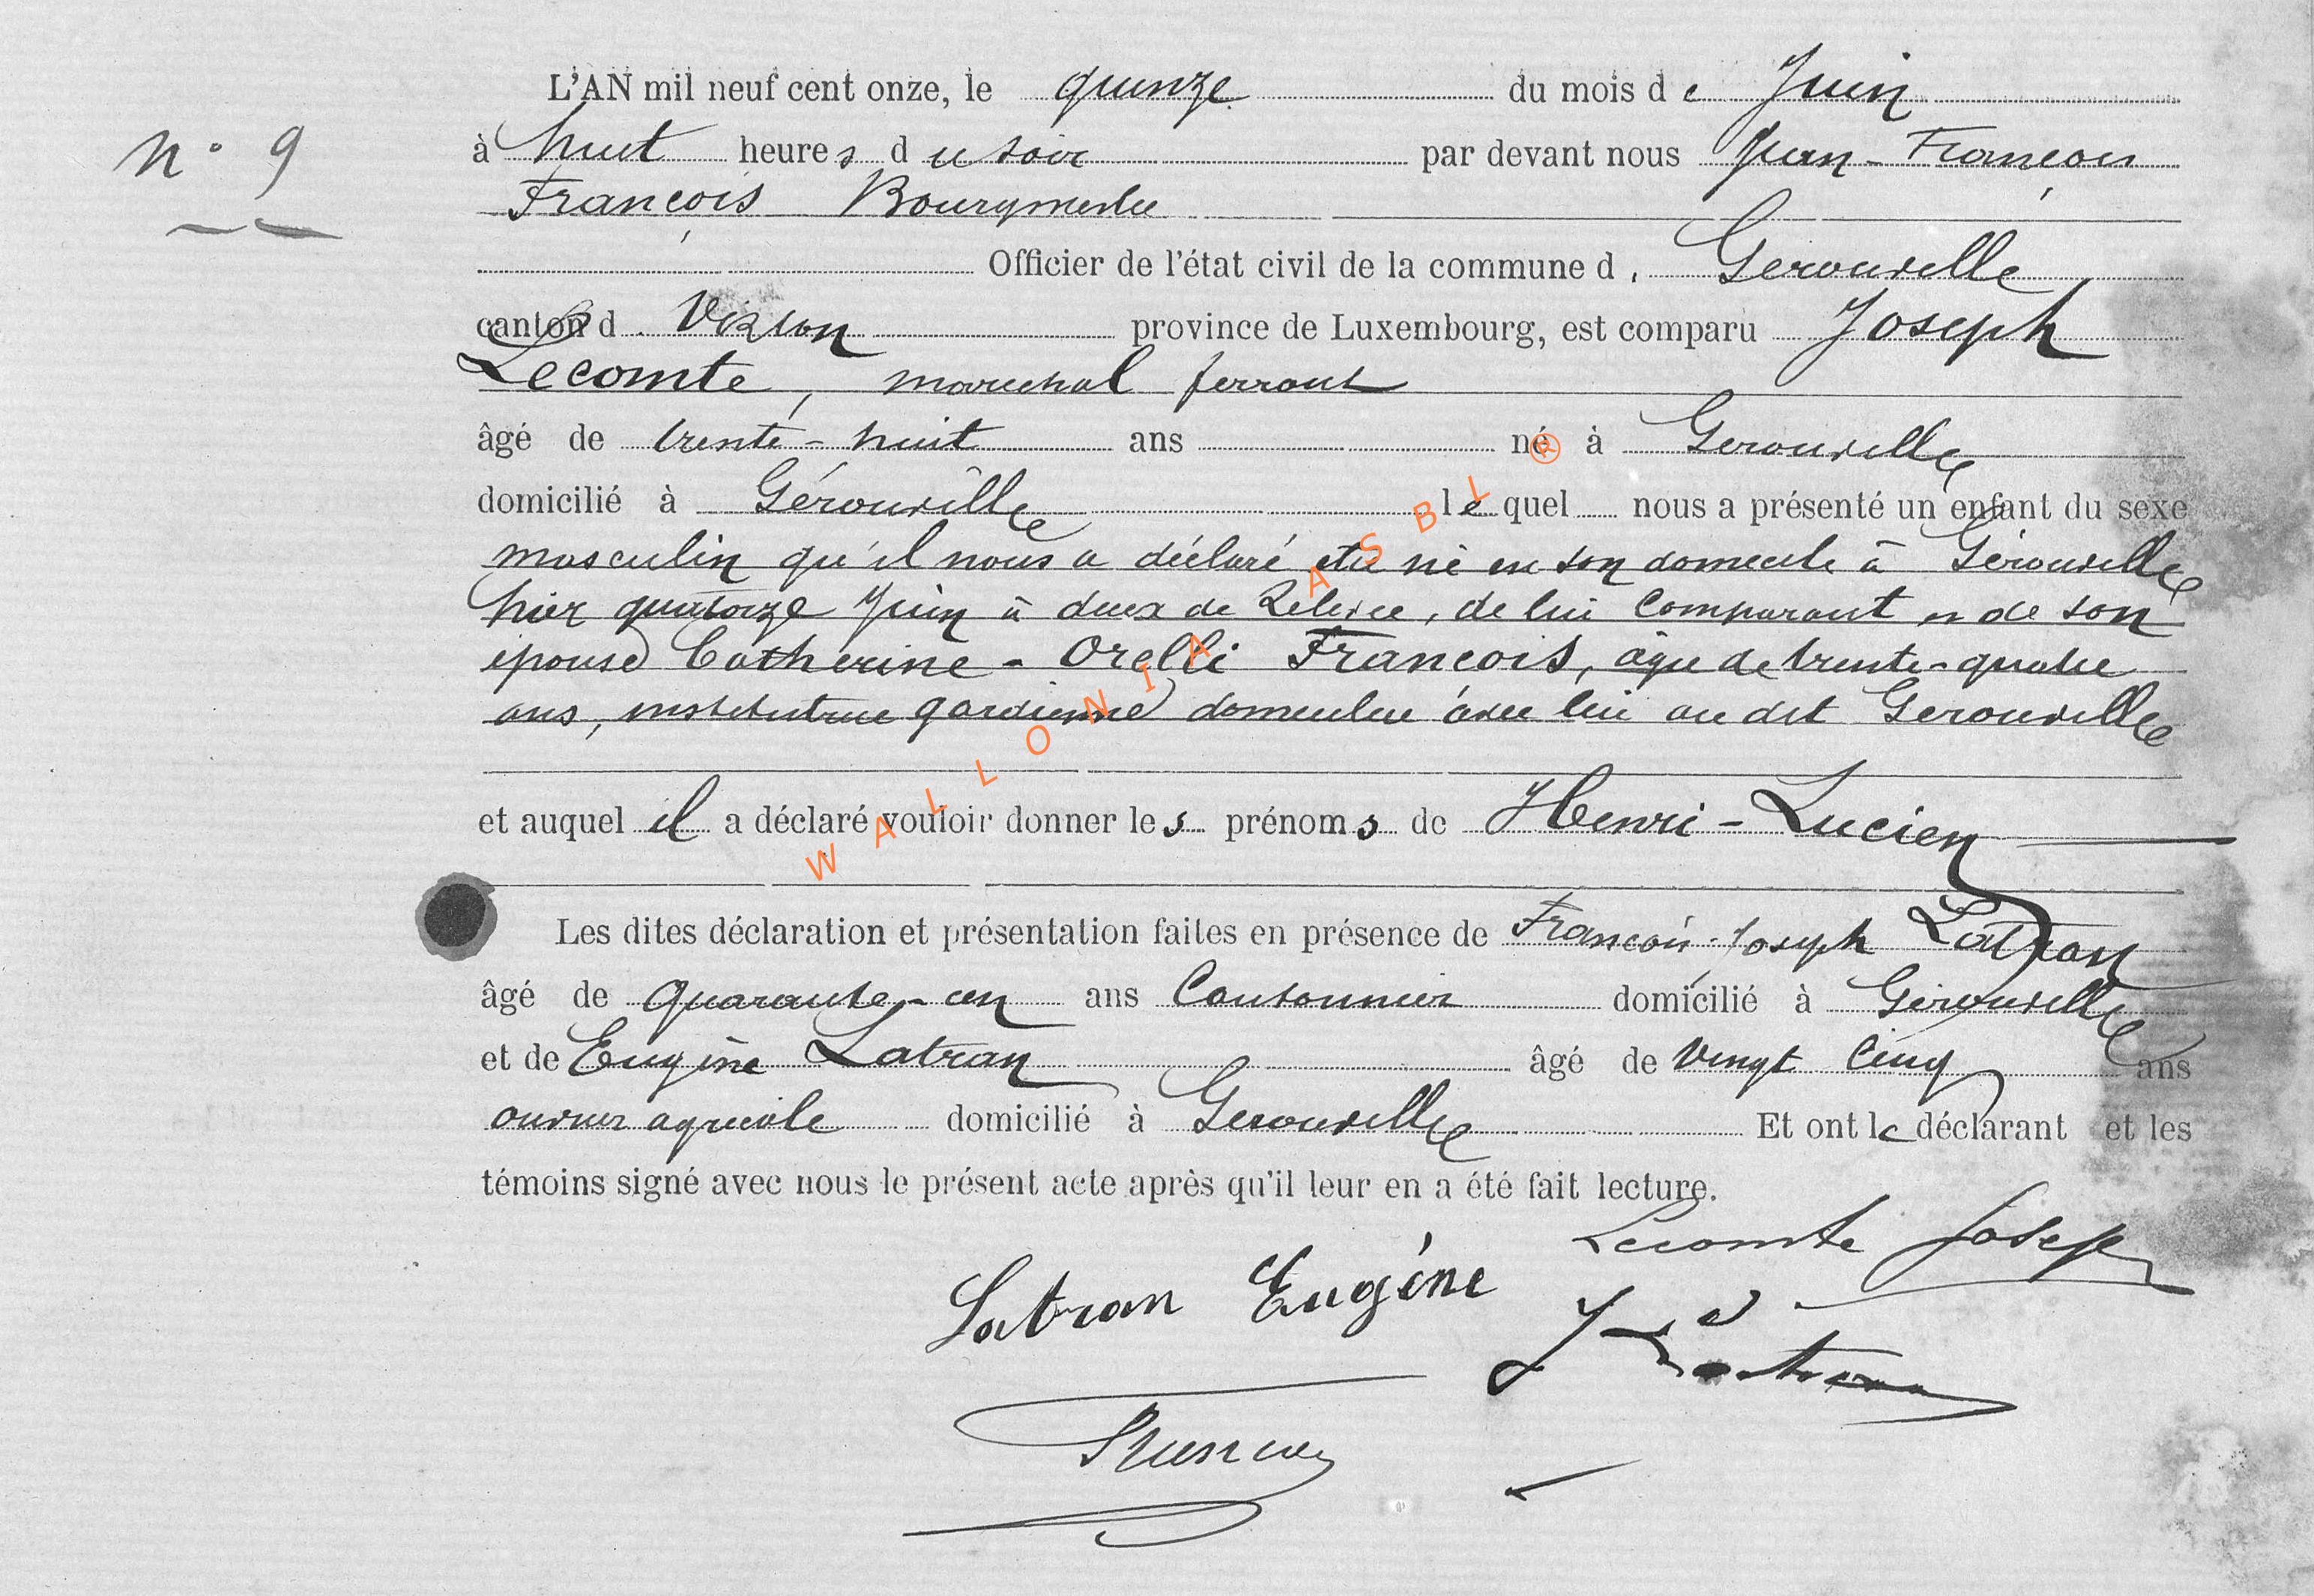 L'AN mil neuf cent onze, le quinze du mois de Juin
N° 9
à huit heures du soir par devant nous Jean-François
François Bourgmestre
Officier de l'état civil de la commune d Gerouville
canton d Virton province de Luxembourg, est comparu Joseph
Lecomte, marechal ferrant
âgé de trente-huit ans né à Gerouville
domicilié à Gérouville lequel nous a présenté un enfant du sexe
masculin qu'il nous a déclaré etre né en son domicile à Gérouville
hier quatorze Juin à deux de relevée, de lui Comparant et de son
épouse Catherine-Orelli François, agée de trente-quatre
ans, institutrice gardienne domiciliée avec lui au dit Gerouville
et auquel il a déclaré vouloir donner les prénoms de Henri-Lucien
Les dites déclaration et présentation faites en présence de François-Joseph Latran
âgé de quarante-un ans Cantonnier domicilié à Gérouville
et de Eugène Latran âgé de vingt cinq ans
ouvrier agricole domicilié à Gerouville Et ont le déclarant et les
témoins signé avec nous le présent acte après qu'il leur en a été fait lecture.
Lecomte Joseph
Latran Eugène
J Latran
WALLONIA ASBL ®